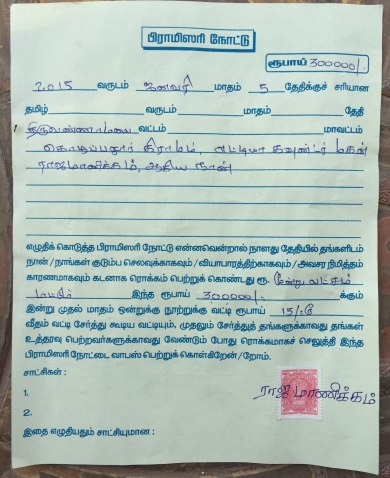 பிராமிஸரி நோட்டு
ரூபாய் 300000/-
2015 வருடம் ஜனவரி மாதம் 5 தேதிக்குச் சரியான
தமிழ் வருடம் மாதம் தேதி
திருவண்ணாமலை வட்டம் மாவட்டம்
கிராமம், கவுண்டர் மகன்
ராஜமாணிக்கம், ஆகிய நான்
எழுதிக் கொடுத்த பிராமிஸரி நோட்டு என்னவென்றால் நாளது தேதியில் தங்களிடம்
நான்/நாங்கள் குடும்ப செலவுக்காகவும்/வியாபாரத்திற்காகவும்/அவசர நிமித்தம்
காரணமாகவும் கடனாக ரொக்கம் பெற்றுக் கொண்டது ரூ. மூன்று லட்சம்
மட்டும் இந்த ரூபாய் 300000/- க்கும்
இன்று முதல் மாதம் ஒன்றுக்கு நூற்றுக்கு வட்டி ரூபாய் 15/-
வீதம் வட்டி சேர்த்து கூடிய வட்டியும், முதலும் சேர்த்துத் தங்களுக்காவது தங்கள்
உத்தரவு பெற்றவர்களுக்காவது வேண்டும் போது ரொக்கமாகச் செலுத்தி இந்த
பிராமிஸரி நோட்டை வாபஸ் பெற்றுக் கொள்கிறேன்/றோம்.
சாட்சிகள் :
ராஜமாணிக்கம்
1.
2.
இதை எழுதியதும் சாட்சியுமான :